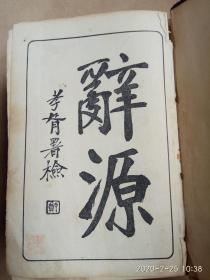 辭源
孝胥署檢
2020-2-25 10:38